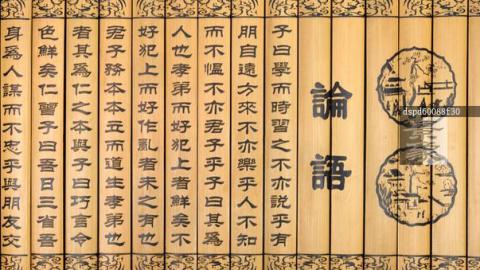 論語
子曰學而時習之不亦說乎有
朋自遠方來不亦樂乎人不知
而不慍不亦君子乎子曰其爲
人也孝弟而好犯上者鮮矣不
好犯上而好作亂者未之有也
君子務本本立而道生孝弟也
者其爲仁之本與子曰巧言令
色鮮矣仁曾子曰吾日三省吾
身爲人謀而不忠乎與朋友交
dspd60088f30